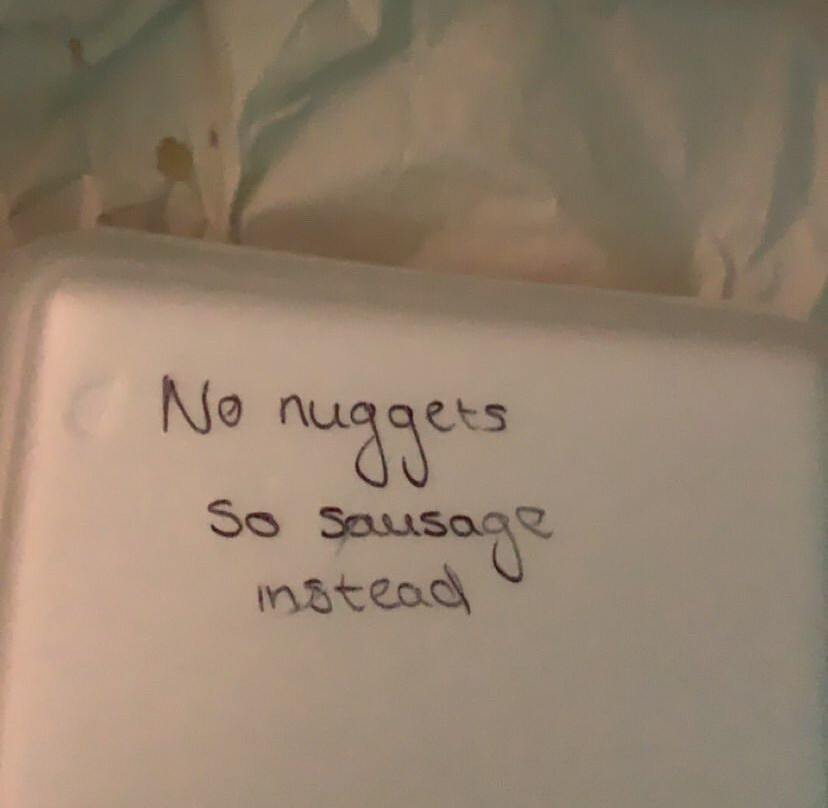 No nuggets
so sausage
instead